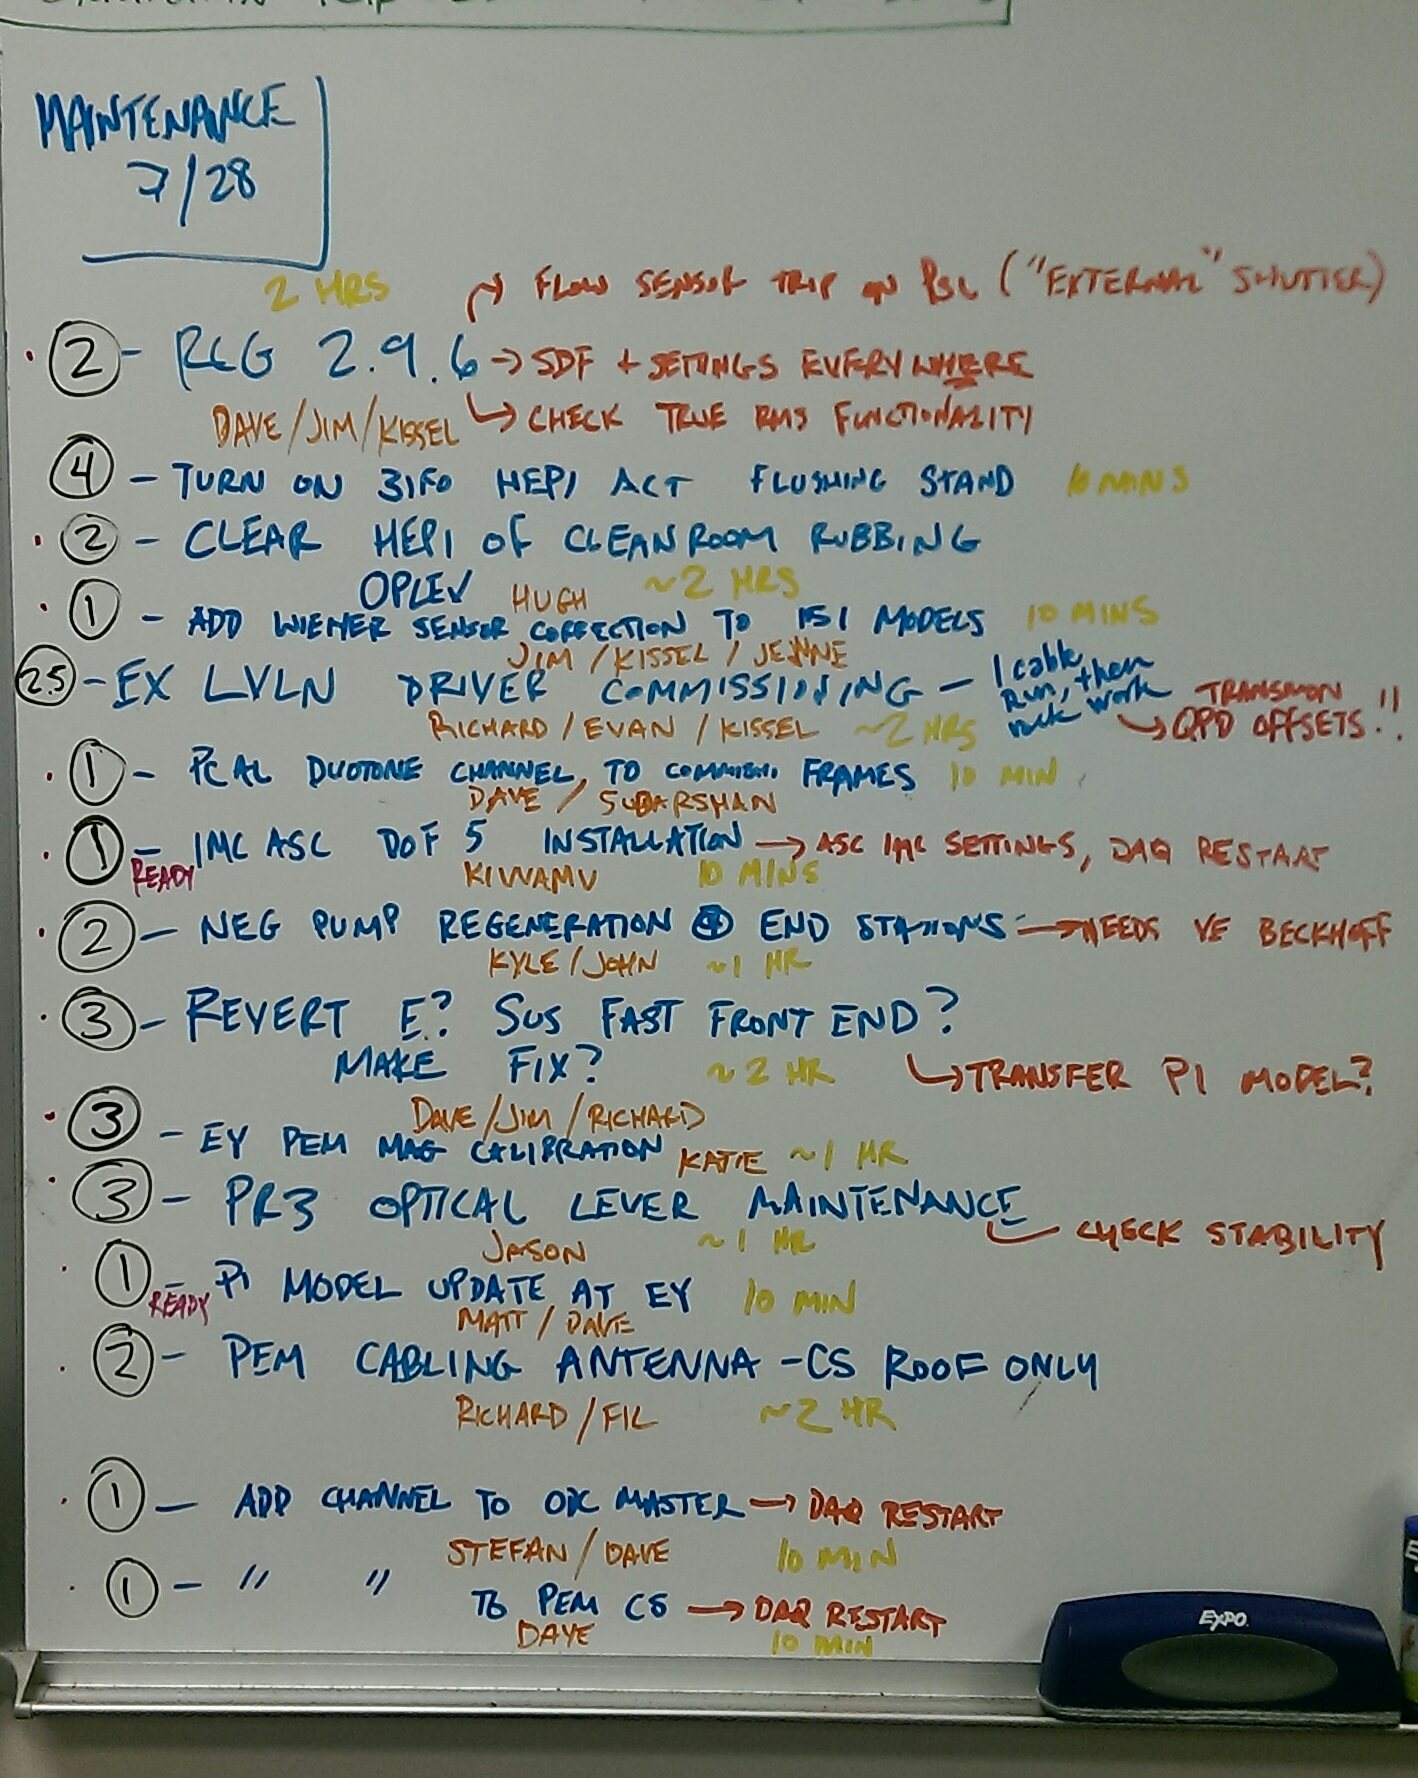 MAINTENANCE
7/28
2 HRS
FLOW SENSOR TRIP ON PSL ("EXTERNAL" SHUTTER)
2 - RCG 2.9.6 → SDF + SETTINGS EVERYWHERE
DAVE/JIM/KISSEL → CHECK TRUE RMS FUNCTIONALITY
4 - TURN ON 3IFO HEPI ACT FLUSHING STAND 10 MINS
2 - CLEAR HEPI OF CLEANROOM RUBBING
HUGH ~2 HRS
OPLEV
1 - ADD WIENER SENSOR CORRECTION TO ISI MODELS 10 MINS
JIM / KISSEL / JENNE
2.5 - EX LVLN DRIVER COMMISSIONING - 1 cable run, then rack work
RICHARD / EVAN / KISSEL ~2 HRS
TRANSMON
→ QPD OFFSETS!!
1 - PCAL DUOTONE CHANNEL, TO COMMISH. FRAMES 10 MIN
DAVE / SUDARSHAN
1 - IMC ASC DOF 5 INSTALLATION → ASC IMC SETTINGS, DAQ RESTART
READY KIWAMU 10 MINS
2 - NEG PUMP REGENERATION @ END STATIONS → NEEDS VE BECKHOFF
KYLE/JOHN ~1 HR
3 - REVERT E? SUS FAST FRONT END?
MAKE FIX? ~2 HR → TRANSFER PI MODEL?
DAVE/JIM/RICHARD
3 - EY PEM MAG CALIBRATION KATIE ~1 HR
3 - PR3 OPTICAL LEVER MAINTENANCE
CHECK STABILITY
JASON ~1 HR
1 - PI MODEL UPDATE AT EY 10 MIN
READY MATT / DAVE
2 - PEM CABLING ANTENNA - CS ROOF ONLY
RICHARD/FIL ~2 HR
1 - ADD CHANNEL TO ODC MASTER → DAQ RESTART
STEFAN/DAVE 10 MIN
1 - " " TO PEM CS → DAQ RESTART
DAVE 10 MIN
EXPO